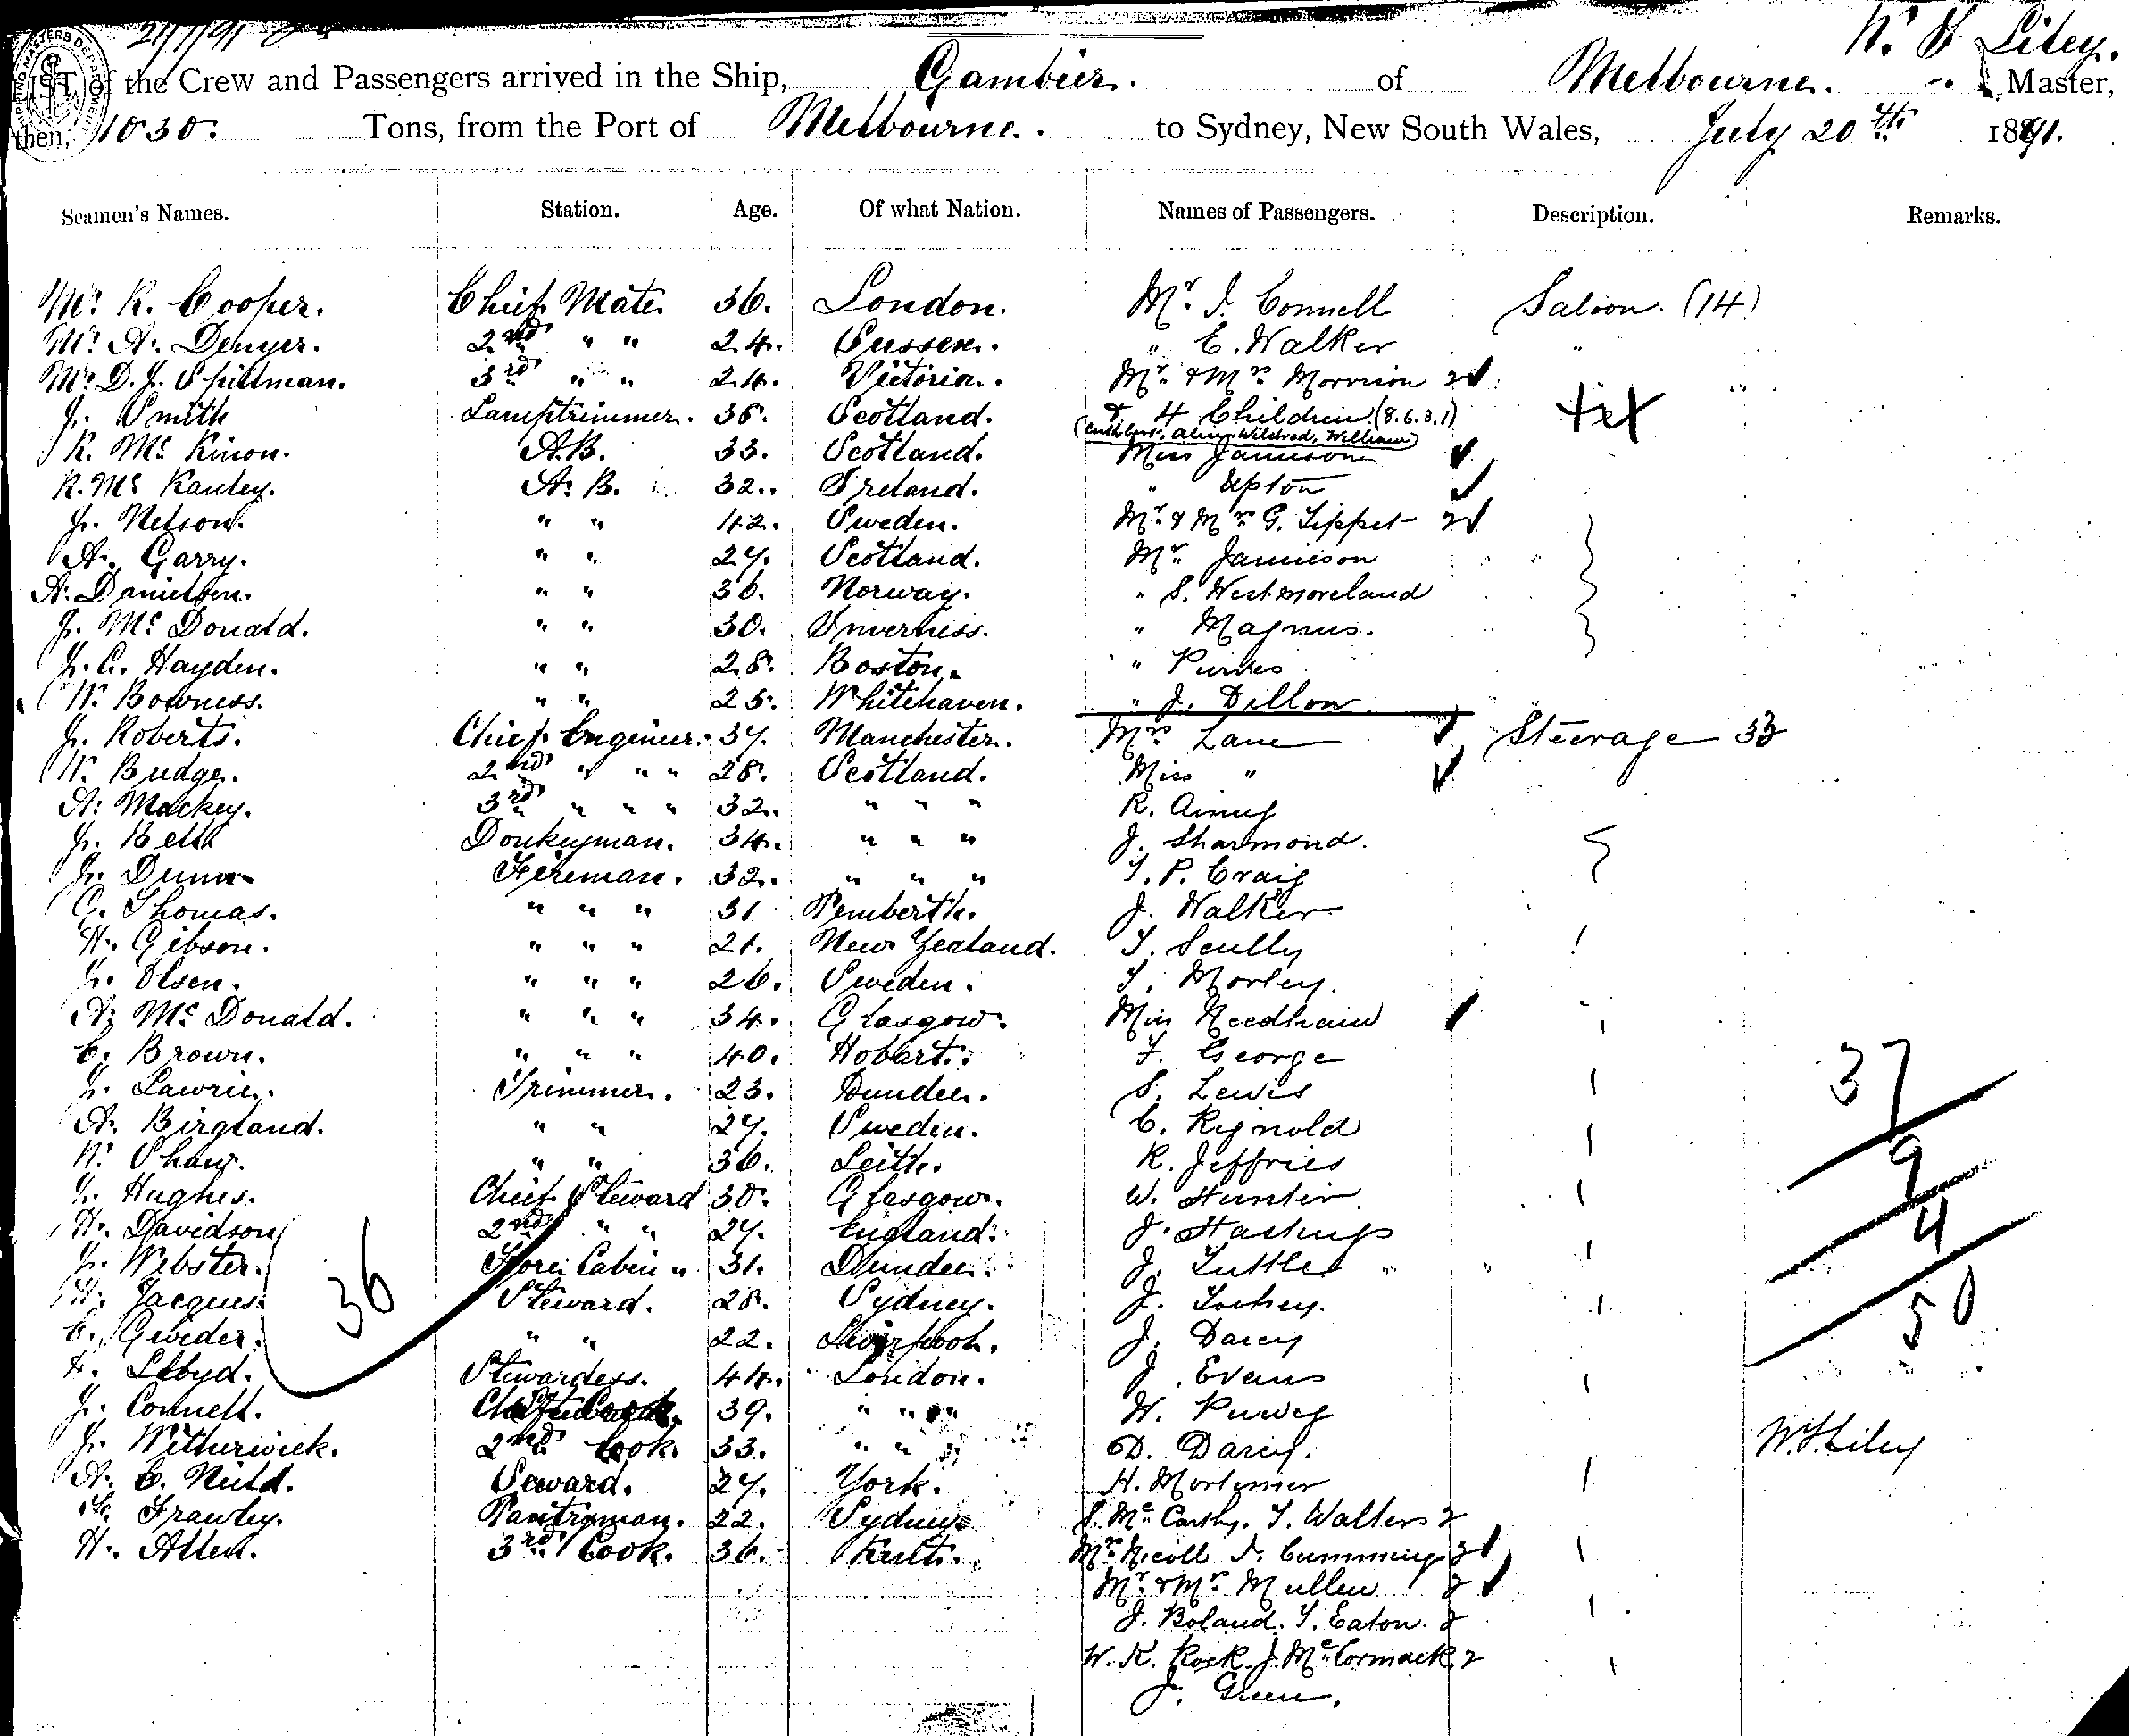 21/7/91
W. S. Liley.
LIST of the Crew and Passengers arrived in the Ship, Gambier. of Melbourne. Master,
then, 1030. Tons, from the Port of Melbourne. to Sydney, New South Wales, July 20th 1891.
Seamen's Names. Station. Age. Of what Nation. Names of Passengers. Description. Remarks.
Mr. R. Cooper. Chief Mate. 36. London. Mr. J. Connell Saloon. (14)
Mr. A. Denyer. 2nd " " 24. Sussex. " E. Walker "
Mr. D. J. Spillman. 3rd " " 24. Victoria. Mr. & Mrs. Morrison 2
J. Smith Lamptrimmer. 35. Scotland. & 4 Children (8.6.3.1)
Wildred, William)
R. Mc Kinon. A.B. 33. Scotland. Miss Jamieson
R. Mc Kauley. A. B. 32. Ireland. " Upton
J. Nelson. " " 42. Sweden. Mr. & Mrs G. Tippet 2
A. Garry. " " 27. Scotland. Mr. Jamieson
A. Danielson. " " 36. Norway. " S. Westmoreland
J. Mc Donald. " " 30. Inverness. " Magnus.
J. C. Hayden. " " 28. Boston. " Purves
W. Bowness. " " 25. Whitehaven. " J. Dillon
J. Roberts. Chief Engineer. 37. Manchester. Mrs Lane Steerage 33
W. Budge. 2nd " " " 28. Scotland. Miss "
A. Mackey. 3rd " " " 32. " " " R.
J. Bell Donkeyman. 34. " " " J. Sharmond.
J. Dunn Fireman. 32. " " " T. P. Craig
G. Thomas. " " " 31 Pemberth. J. Walker
H. Gibson. " " " 21. New Zealand. T. Scully
J. Olsen. " " " 26. Sweden. T. Morley.
A. Mc Donald. " " " 34. Glasgow. Miss Needham
C. Brown. " " " 40. Hobart. F. George
J. Lawrie. Trimmer. 23. Dundee. S. Lewis
A. Birgland. " " 27. Sweden. C. Rignold
W. Shaw. " " 36. Leith. R. Jeffries
J. Hughes. Chief Steward 30. Glasgow. W. Hunter
H. Davidson 2nd " " 27. England. J. Hastings
J. Webster. Fore Cabin " 31. Dundee. J. Tuttle " "
H. Jacques. Steward. 28. Sydney. J. Toohey.
C. Gweder. " " 22. Liverpool. J. Darcy
36
37
9
4
50
H. Lloyd. Stewardess. 44. London. J. Evans
J. Connell. 39. " " " W. Purvey
J. Witherwick. 2nd Cook. 33. " " " D. Darcy.
W. S. Liley
A. C. Neild. Steward. 27. York. H. Mortimer
Frawley. Pantryman. 22. Sydney. S. Mc Carthy. T. Walters 2
H. Allen. 3rd Cook. 36. Kent. Mrs Nicoll J. Cummings 2
Mr. & Mrs. Mullen 2
J. Boland. T. Eaton. 2
W. K. Rock. J. McCormack. 2
J. Green.